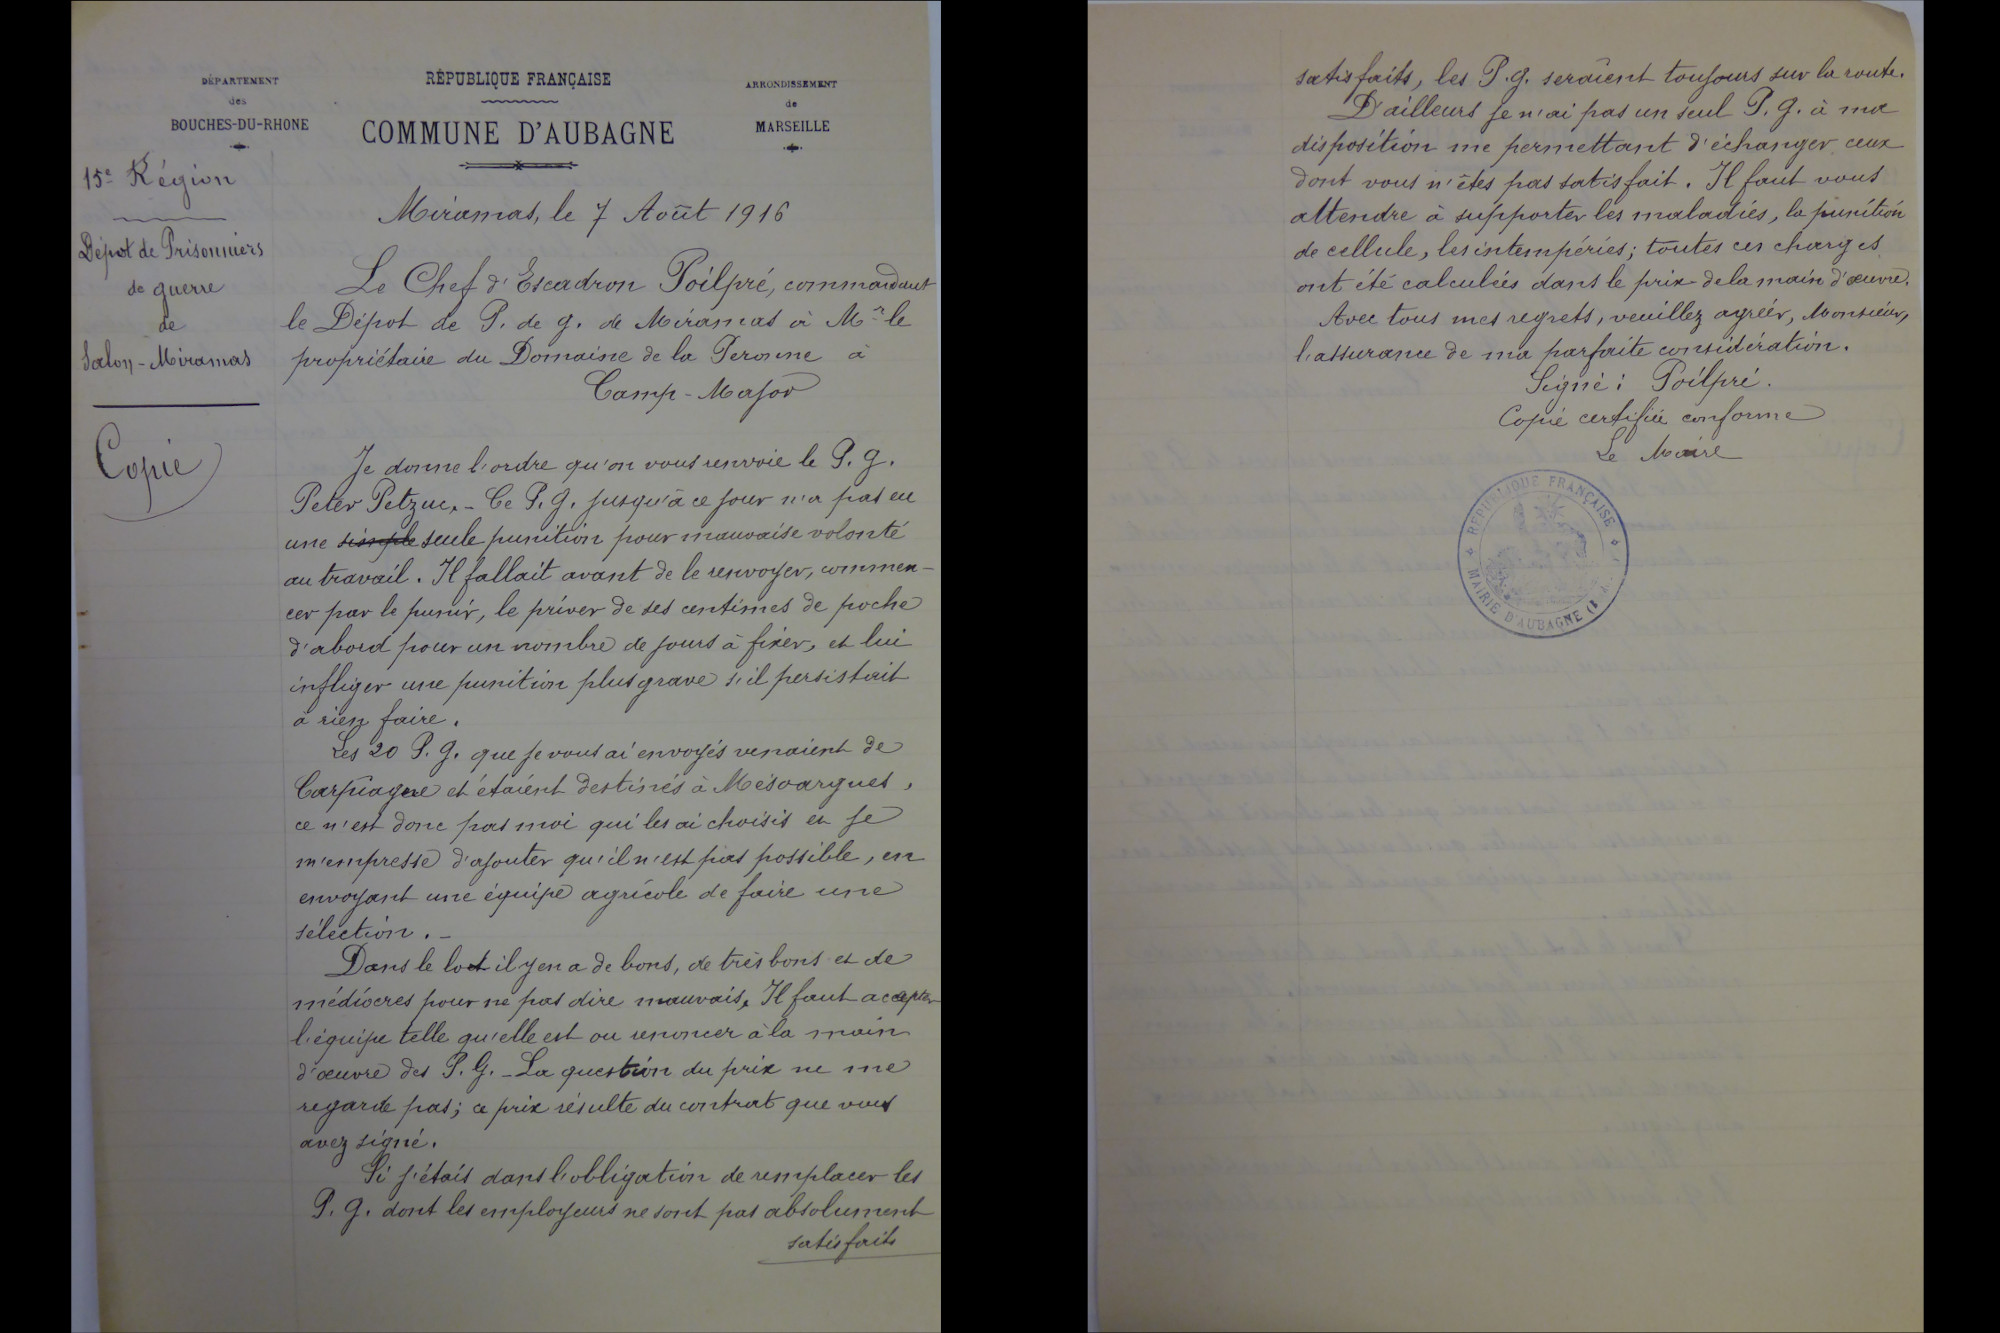 DÉPARTEMENT
des
BOUCHES-DU-RHONE
RÉPUBLIQUE FRANÇAISE
COMMUNE D'AUBAGNE
ARRONDISSEMENT
de
MARSEILLE
15e Région
Dépot de Prisonniers
de guerre
de
Salon-Miramas
Copie
Miramas, le 7 Août 1916
Le Chef d'Escadron Poilpré, commandant
le Dépot de P. de g. de Miramas à Mr le
propriétaire du Domaine de la Peronne à
Camp-Major
Je donne l'ordre qu'on vous renvoie le P. g.
Peter Petzuc. - Ce P. g. jusqu'à ce jour n'a pas eu
une simple seule punition pour mauvaise volonté
au travail. Il fallait avant de le renvoyer, commen-
cer par le punir, le priver de ses centimes de poche
d'abord pour un nombre de jours à fixer, et lui
infliger une punition plus grave s'il persistait
à rien faire.
Les 20 P. g. que je vous ai envoyés venaient de
Carpiagne et étaient destinés à Mésoargues,
ce n'est donc pas moi qui les ai choisis et je
m'empresse d'ajouter qu'il n'est pas possible, en
envoyant une équipe agricole de faire une
sélection. -
Dans le lot il y en a de bons, de très bons et de
médiocres pour ne pas dire mauvais. Il faut accepter
l'équipe telle qu'elle est ou renoncer à la main
d'œuvre des P. G. - La question du prix ne me
regarde pas; ce prix résulte du contrat que vous
avez signé.
Si j'étais dans l'obligation de remplacer les
P. g. dont les employeurs ne sont pas absolument
satisfaits
satisfaits, les P. g. seraient toujours sur la route.
D'ailleurs je n'ai pas un seul P. g. à ma
disposition me permettant d'échanger ceux
dont vous n'êtes pas satisfait. Il faut vous
attendre à supporter les maladies, la punition
de cellule, les intempéries; toutes ces charges
ont été calculées dans le prix de la main d'œuvre.
Avec tous mes regrets, veuillez agréer, Monsieur,
l'assurance de ma parfaite considération.
Signé: Poilpré.
Copie certifiée conforme
Le Maire
RÉPUBLIQUE FRANÇAISE
MAIRIE D'AUBAGNE